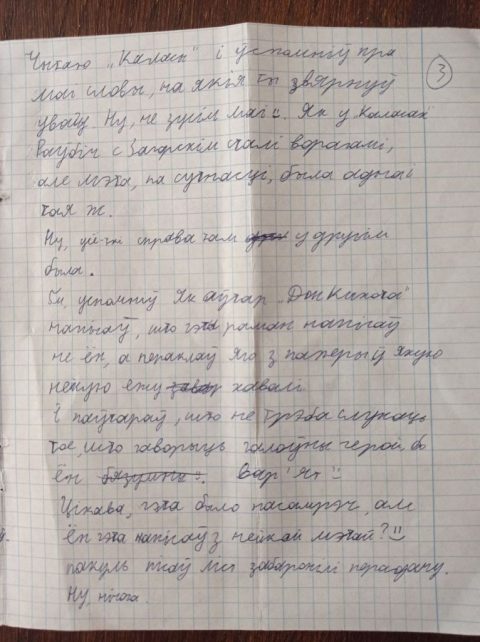 Чытаю „Каласы" і ўспомніў пра
мае словы, на якія ты звярнуў
увагу. Ну, не зусім мае!!. Як у Каласах
Раубіч с Загорскім сталі ворагамі,
але мэта, па сутнасці, была адна і
тая ж.
Ну, ці-ж справа там у другім
была.
Ты, успомніў як аўтар „Дон Кіхота"
напісаў, што гэта раман напісаў
не ён, а пераклаў яго з паперы ў якую
нейкую ежу хавалі
І паўтараў, што не трэба слухаць
тое, што гаворыць галоўны герой, бо
ён Вар'ят!!
Цікава, гэта было насамрэч, але
ён гэта напісаў з нейкай мэтай?!!
пакуль пісаў ліст забаранілі перадачу.
Ну, нічога.
3